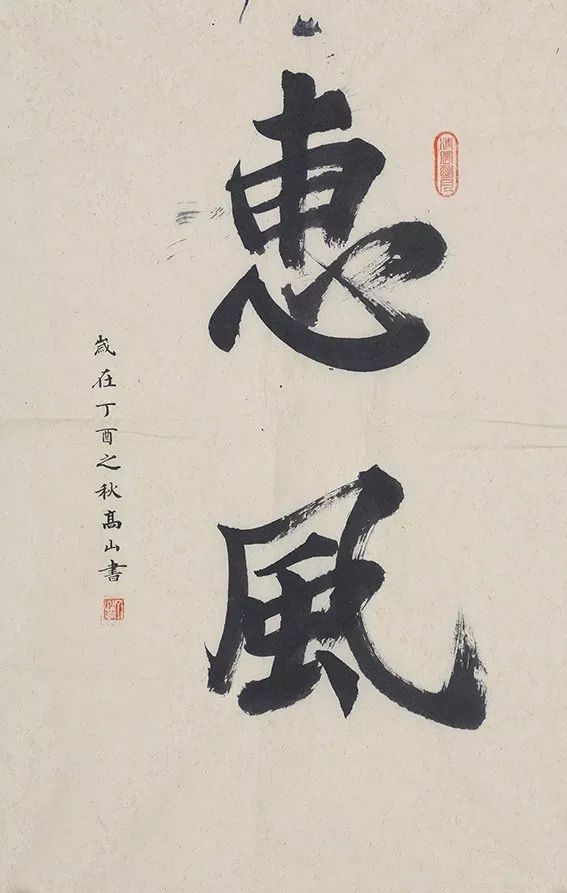 惠風
歳在丁酉之秋高山書